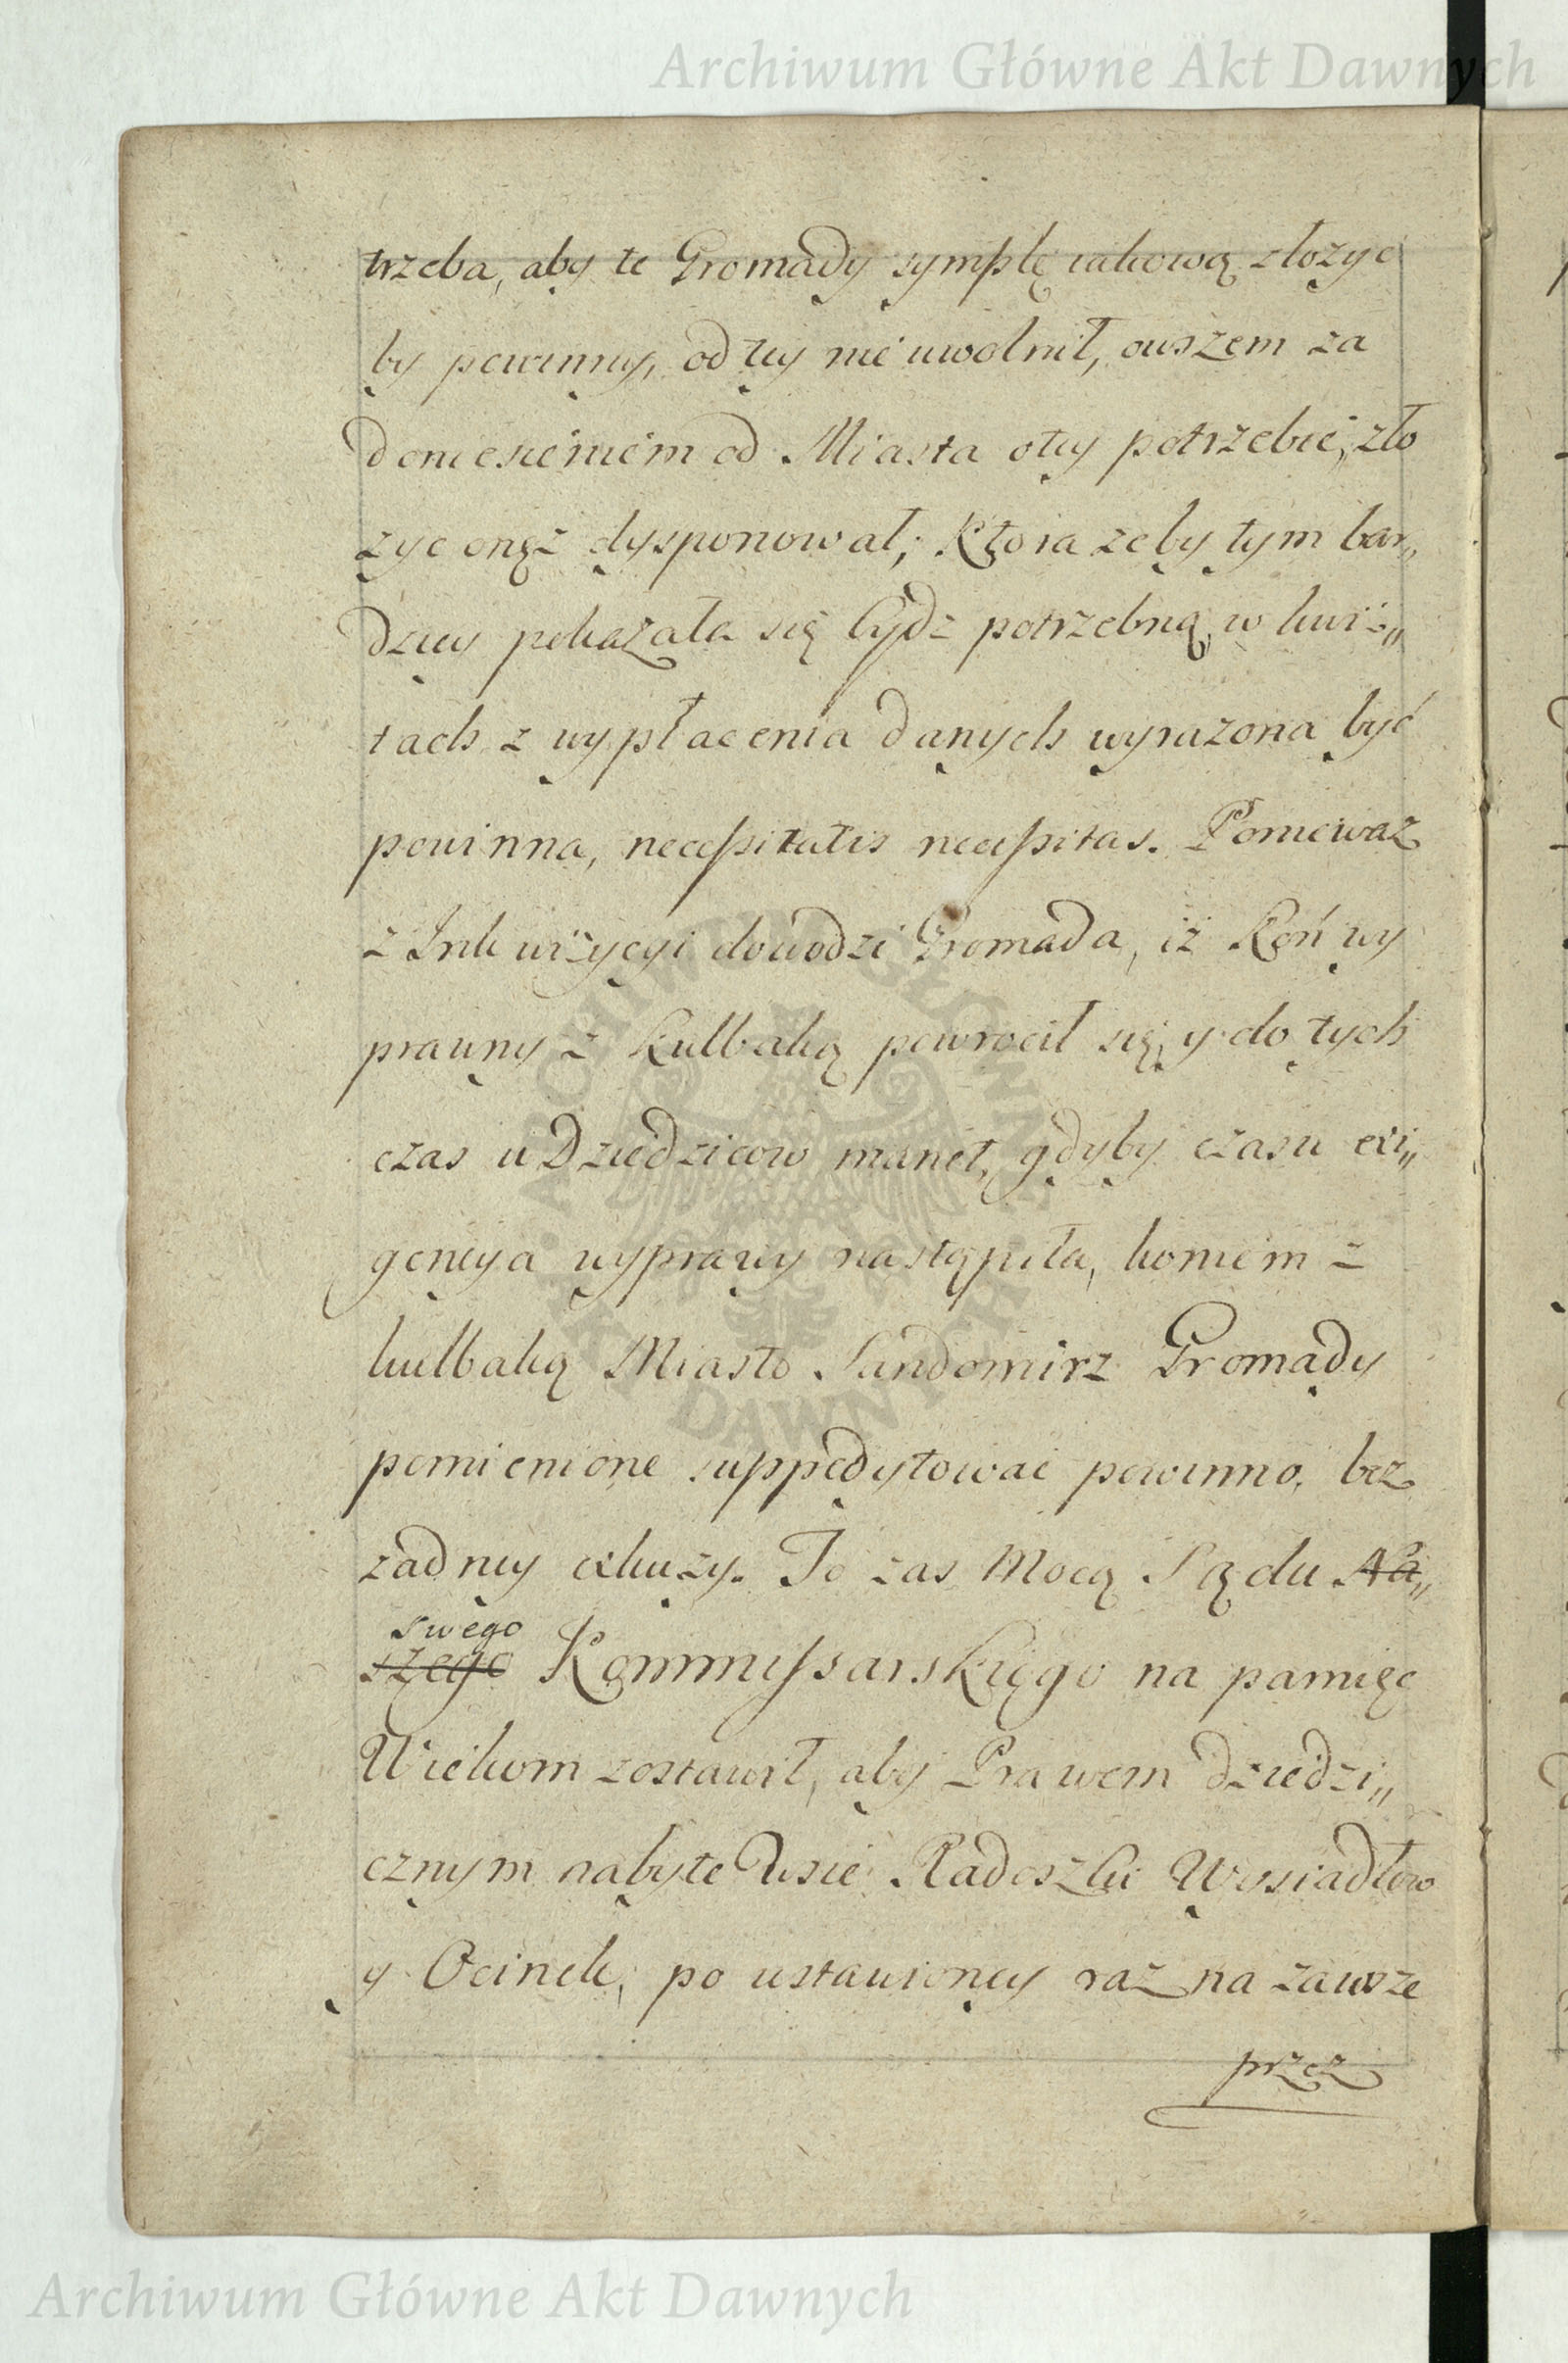 Archiwum Główne Akt Dawnych
trzeba, aby te Gromady symplę iakową złozyc
by powinny, od tey nie uwolnił, owszem za
doniesieniem od Miasta otey potrzebie, zło
zyc onęż dysponował; Ktora zeby tym bar„
dziey pokazała się bydz potrzebną, w kwi„
tach z wypłacenia danych wyrazona być
powinna, necessitatis necessitas. Poniewaz
z Inkwizycyi dowodzi Gromada, iż Koń wy
prawny z Kulbaką powrocił się, y do tych
czas u Dziedzicow manet, gdyby czasu exi„
gencya wyprawy nastąpiła, koniem z
kulbaką Miasto Sandomirz Gromady
pomienione suppedytowac powinno, bez
zadney exkuzy. To zas Mocą Sądu Na„
swego
szego Kommissarskiego na pamięc
Wiekom zostawił, aby Prawem dziedzi„
cznym nabyte Wsie Radoszki Wysiadłow
y Ocinek, po ustawioney raz na zawsze
przez
ARCHIWUM GŁÓWNE AKT DAWNYCH
Archiwum Główne Akt Dawnych